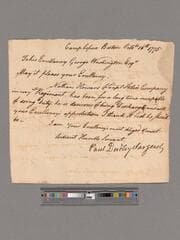 Camp before Boston Octo. 16th 1775
To his Excellency George Washington Esqr.
May it please your Excellency
Nathan Howard of Capt. Company
in my Regiment has been for a long time incapable
of doing Duty he is desirous of being Discharged and with
your Excellencys approbation I think it will be proper
to
I am your Excellencys most obliged & most
obedient Humble Servant
Paul Dudley Sargent